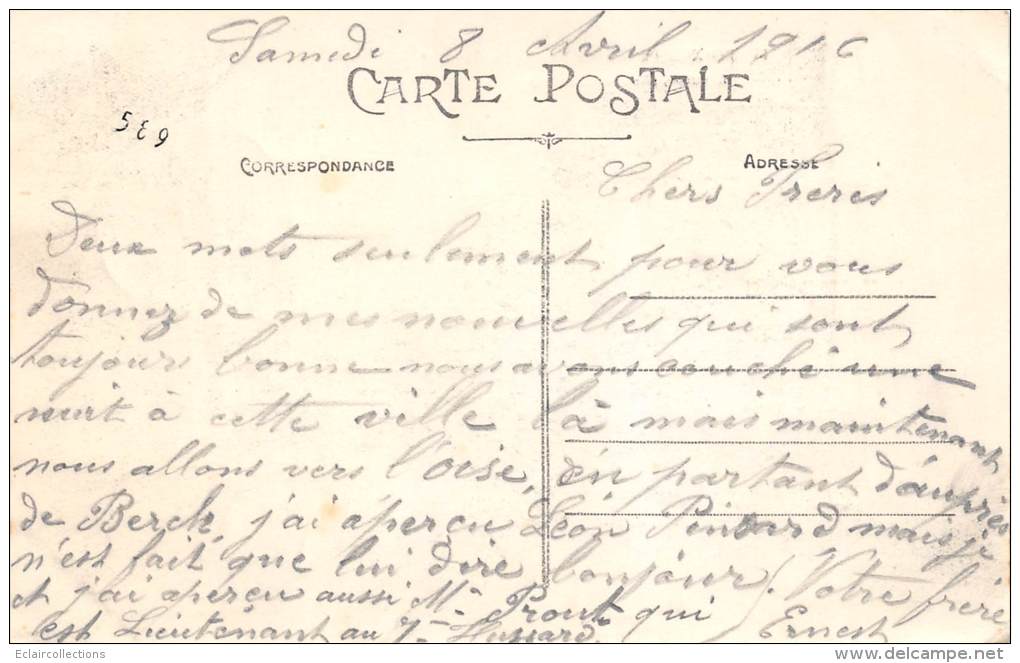 Samedi 8 Avril 1916
CARTE POSTALE
589
CORRESPONDANCE
ADRESSE
Chers Freres
Deux mots seulement pour vous
donnez de mes nouvelles qui sont
toujours bonne nous avons couché une
nuit à cette ville là mais maintenant
nous allons vers l'Oise, en partant d'auprès
de Berck, j'ai aperçu Léon Pintard mais je
n'est fait que lui dire bonjour. Votre frère
et j'ai aperçu aussi Mr Prout qui
est Lieutenant au 7me Hussard. Ernest
Eclaircollections
delcampe.net